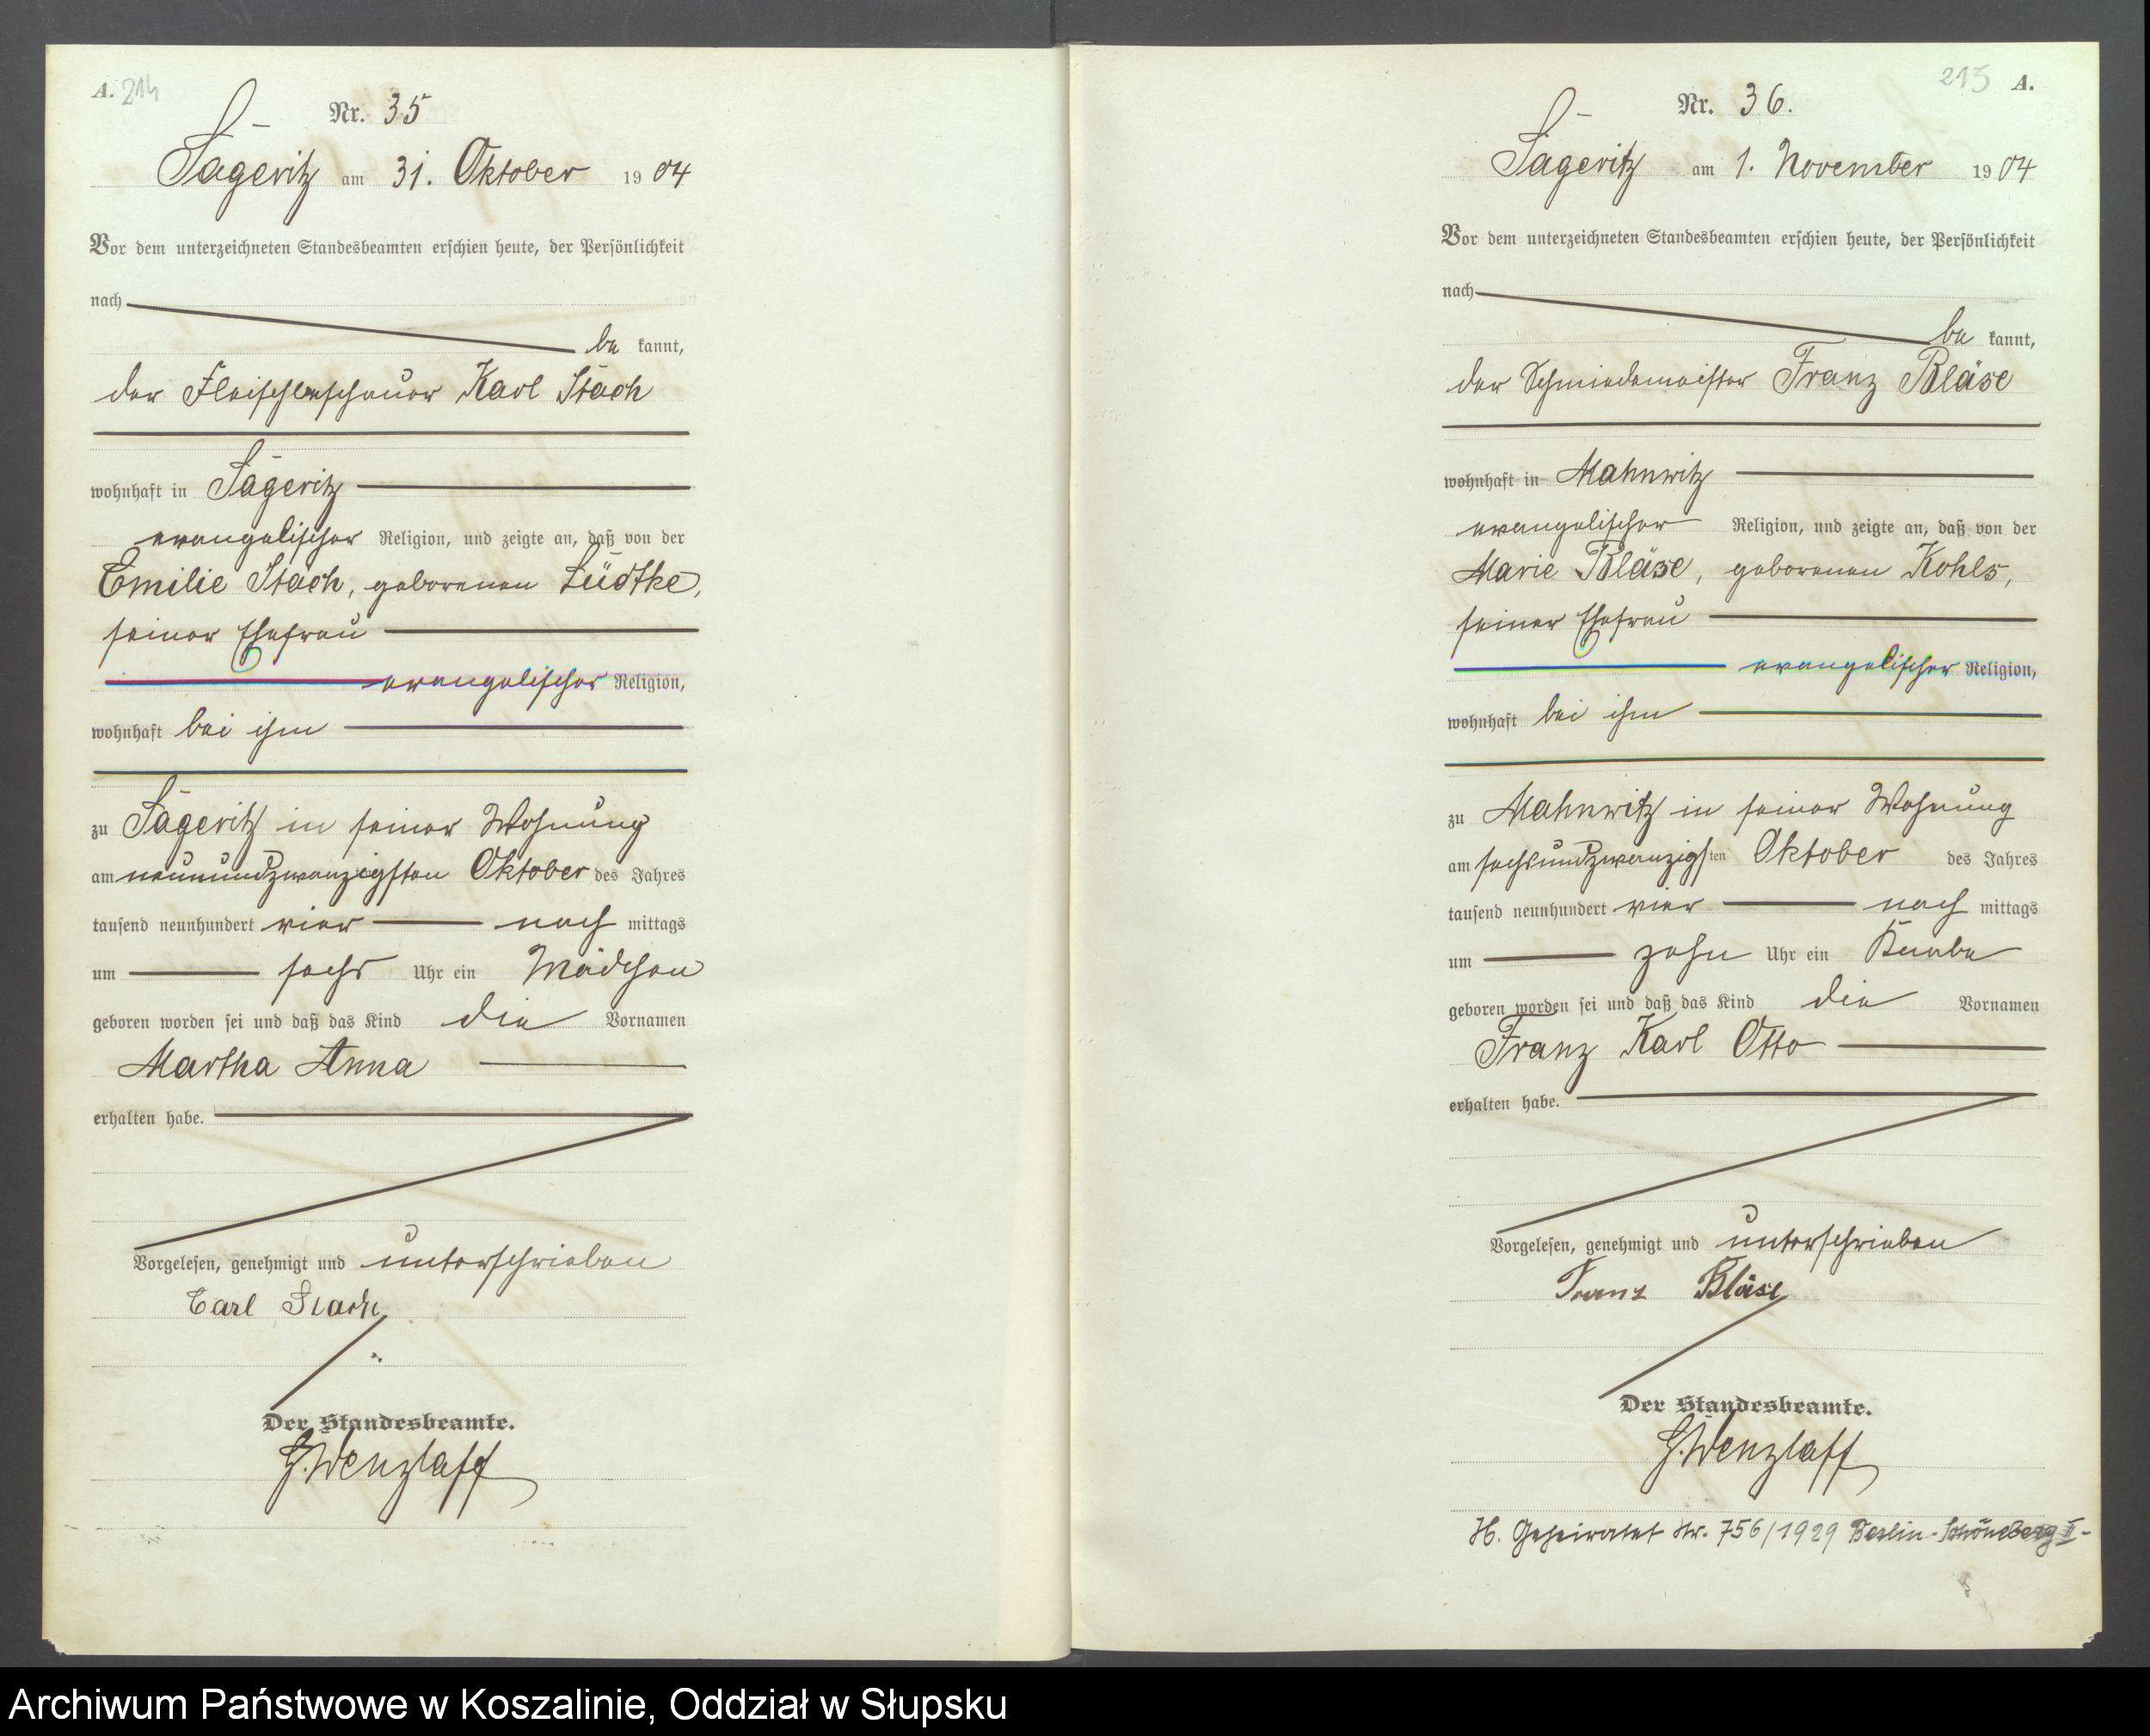 A. 214
Nr. 35
Sageritz am 31. Oktober 1904
Vor dem unterzeichneten Standesbeamten erschien heute, der Persönlichkeit
nach
be kannt,
der Fleischbeschauer Karl Stach
wohnhaft in Sageritz
evangelischer Religion, und zeigte an, daß von der
Emilie Stach, geborenen Lüdtke,
seiner Ehefrau
evangelischer Religion,
wohnhaft bei ihm
zu Sageritz in seiner Wohnung
am neunundzwanzigsten Oktober des Jahres
tausend neunhundert vier nach mittags
um sechs Uhr ein Mädchen
geboren worden sei und daß das Kind die Vornamen
Martha Anna
erhalten habe.
Vorgelesen, genehmigt und unterschrieben
Carl Stach
Der Standesbeamte.
G. Wenzlaff
215 A.
Nr. 36.
Sageritz am 1. November 1904
Vor dem unterzeichneten Standesbeamten erschien heute, der Persönlichkeit
nach
be kannt,
der Schmiedemeister Franz Bläse
wohnhaft in Mahnwitz
evangelischer Religion, und zeigte an, daß von der
Marie Bläse, geborenen Kohls,
seiner Ehefrau
evangelischer Religion,
wohnhaft bei ihm
zu Mahnwitz in seiner Wohnung
am sechsundzwanzigsten Oktober des Jahres
tausend neunhundert vier nach mittags
um zehn Uhr ein Knabe
geboren worden sei und daß das Kind die Vornamen
Franz Karl Otto
erhalten habe.
Vorgelesen, genehmigt und unterschrieben
Franz Bläse
Der Standesbeamte.
G. Wenzlaff
H. Geheiratet Nr. 756/1929 Berlin-Schöneberg II-
Archiwum Państwowe w Koszalinie, Oddział w Słupsku